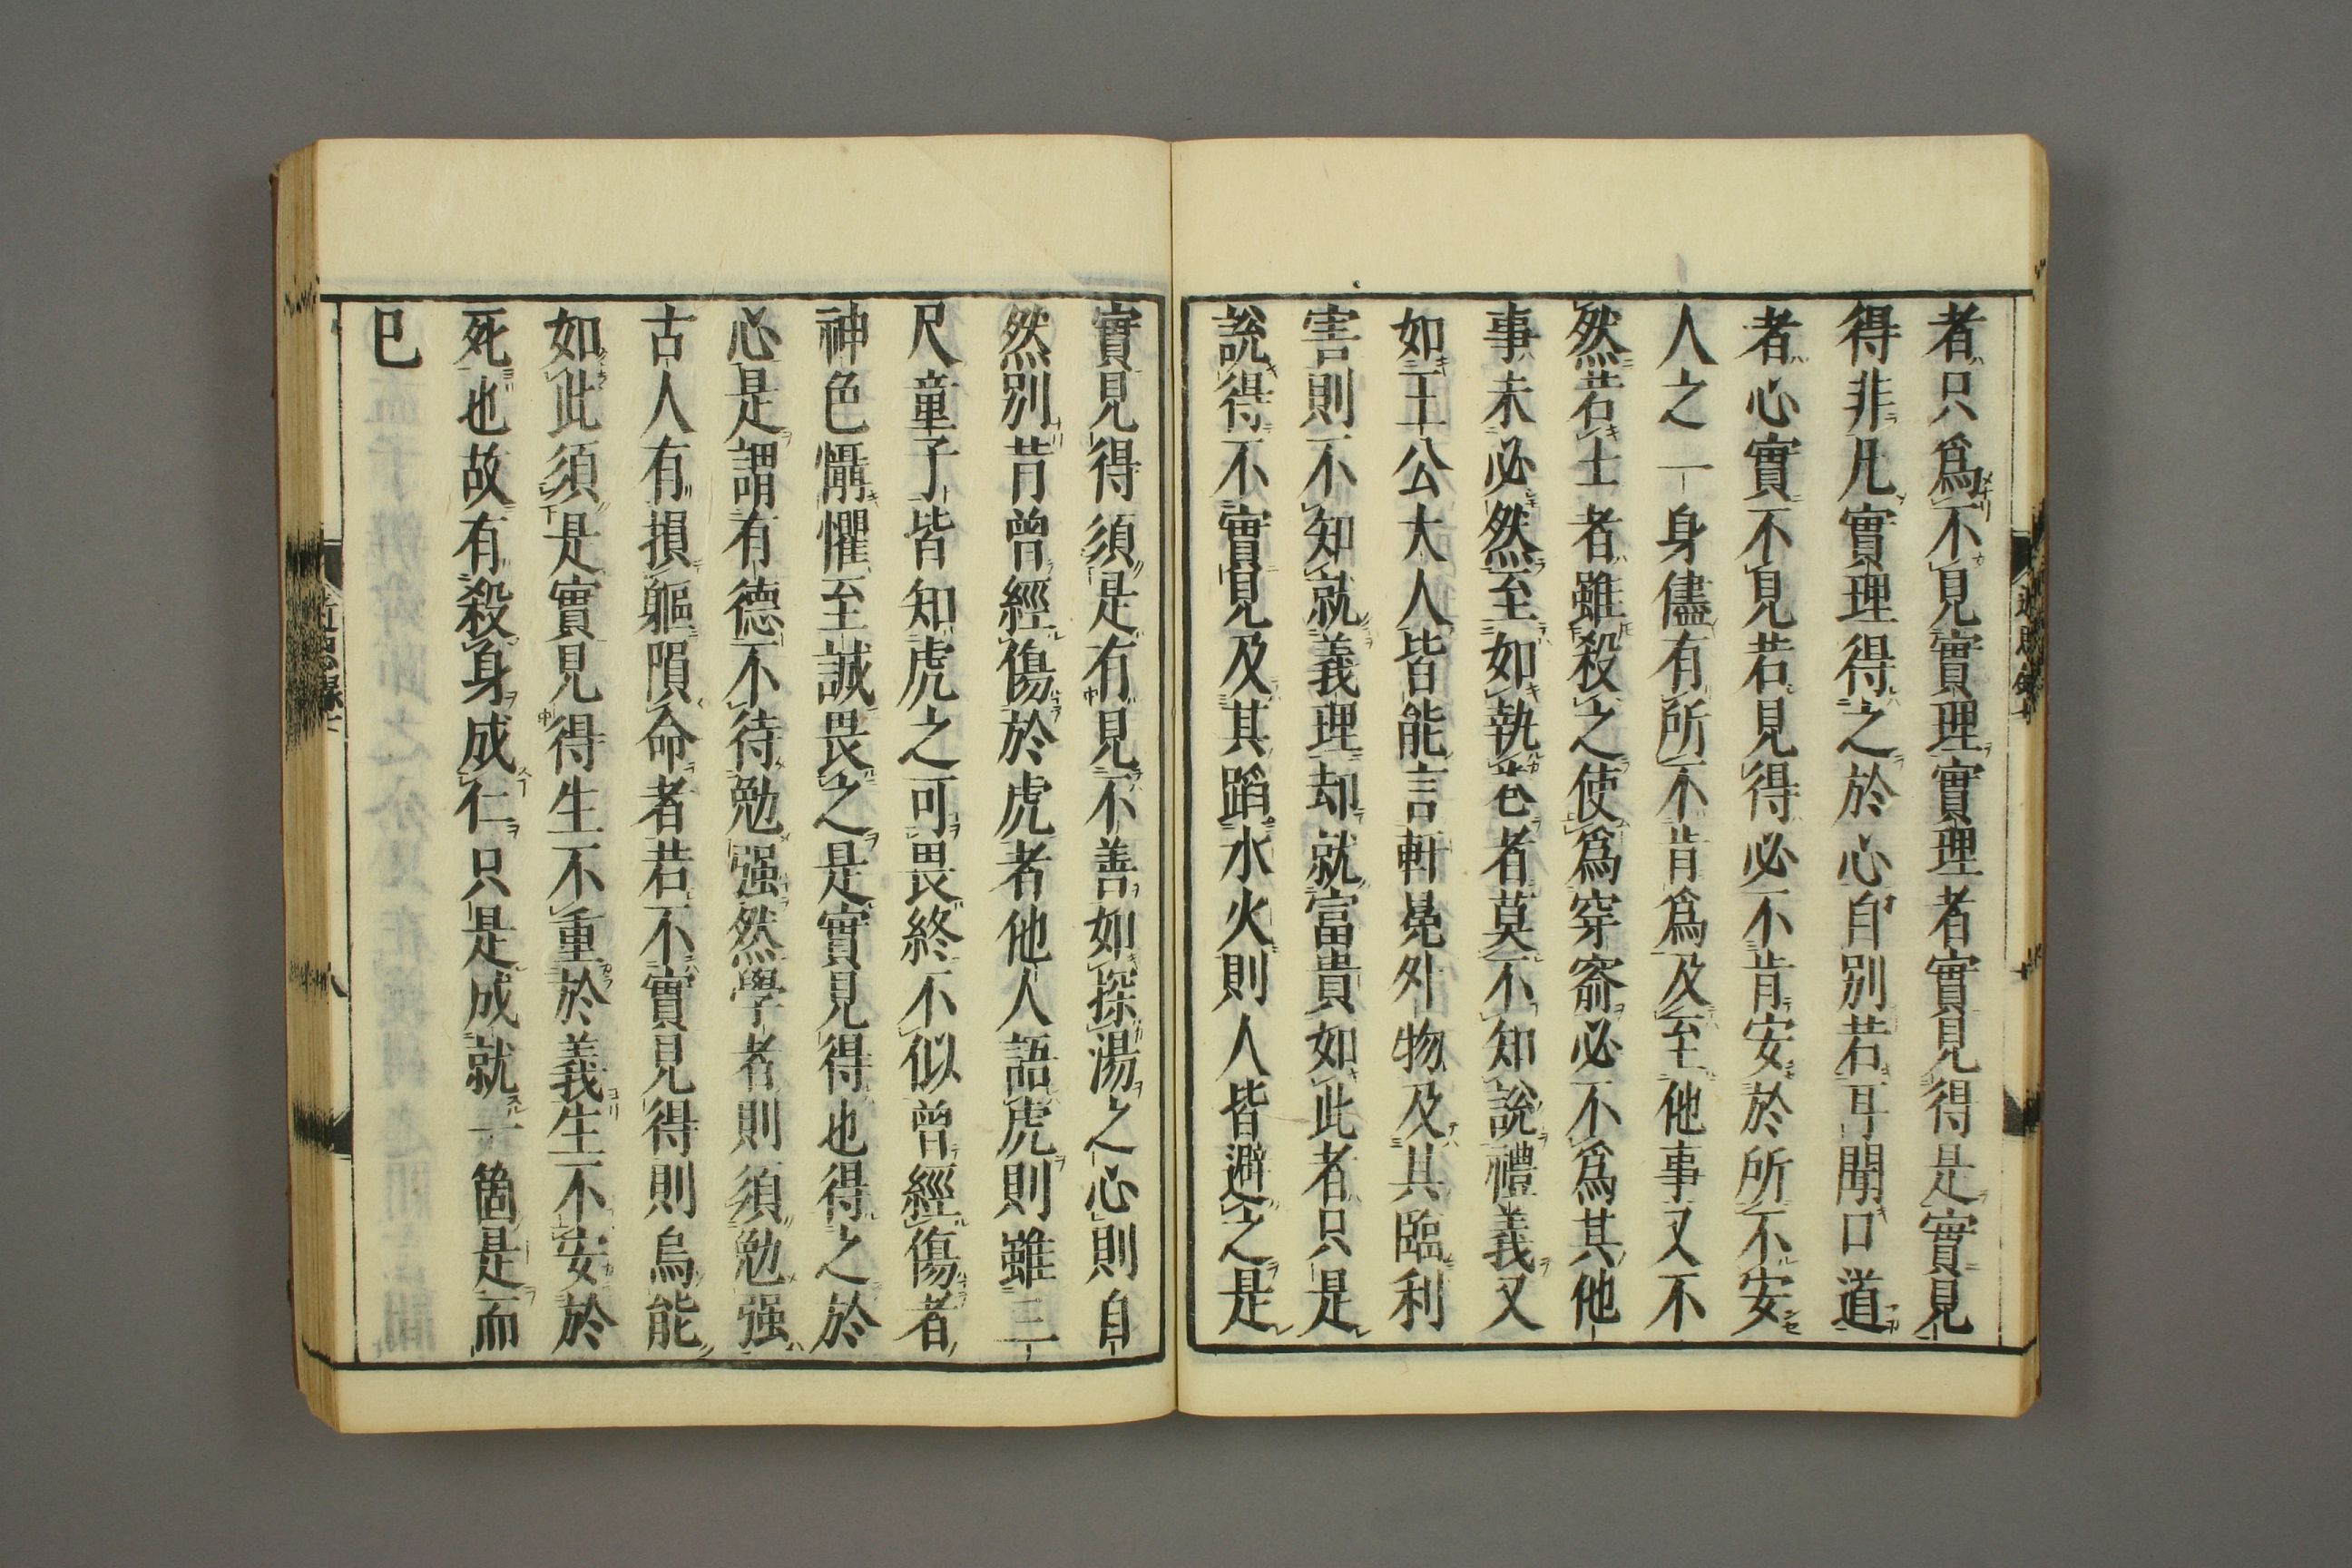 者只爲不見實理實理者實見得是實見
得非凡實理得之於心自別若耳聞口道
者心實不見若見得必不肯安於所不安
人之一身儘有所不肯爲及至他事又不
然若士者雖殺之使爲穿窬必不爲其他
事未必然至如執卷者莫不知說禮義又
如王公大人皆能言軒冕外物及其臨利
害則不知就義理却就富貴如此者只是
說得不實見及其蹈水火則人皆避之是
實見得須是有見不善如探湯之心則自
然別昔曾經傷於虎者他人語虎則雖三
尺童子皆知虎之可畏終不似曾經傷者
神色懾懼至誠畏之是實見得也得之於
心是謂有德不待勉强然學者則須勉强
古人有損軀隕命者若不實見得則烏能
如此須是實見得生不重於義生不安於
死也故有殺身成仁只是成就一箇是而
已
近思錄七
八